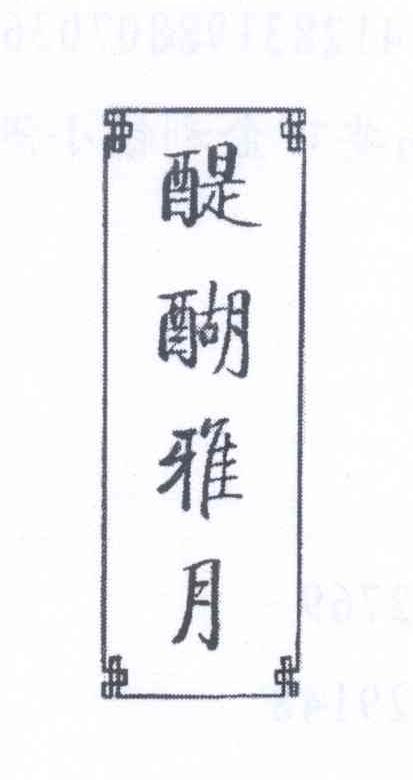 醍醐雅月